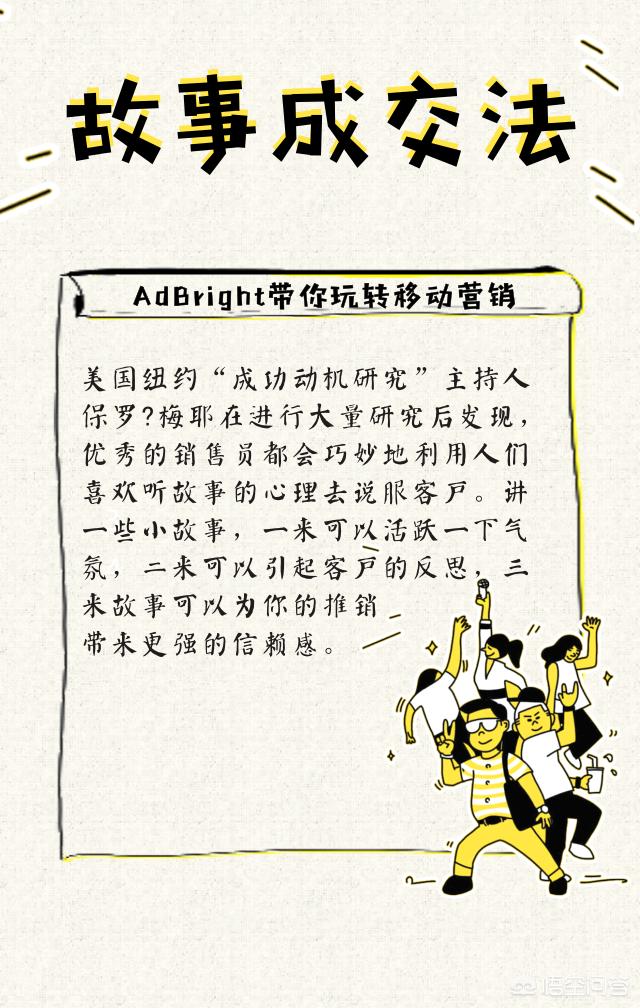 故事成交法
AdBright带你玩转移动营销
美国纽约“成功动机研究”主持人
保罗?梅耶在进行大量研究后发现，
优秀的销售员都会巧妙地利用人们
喜欢听故事的心理去说服客户。讲
一些小故事，一来可以活跃一下气
氛，二来可以引起客户的反思，三
来故事可以为你的推销
带来更强的信赖感。
悟空问答